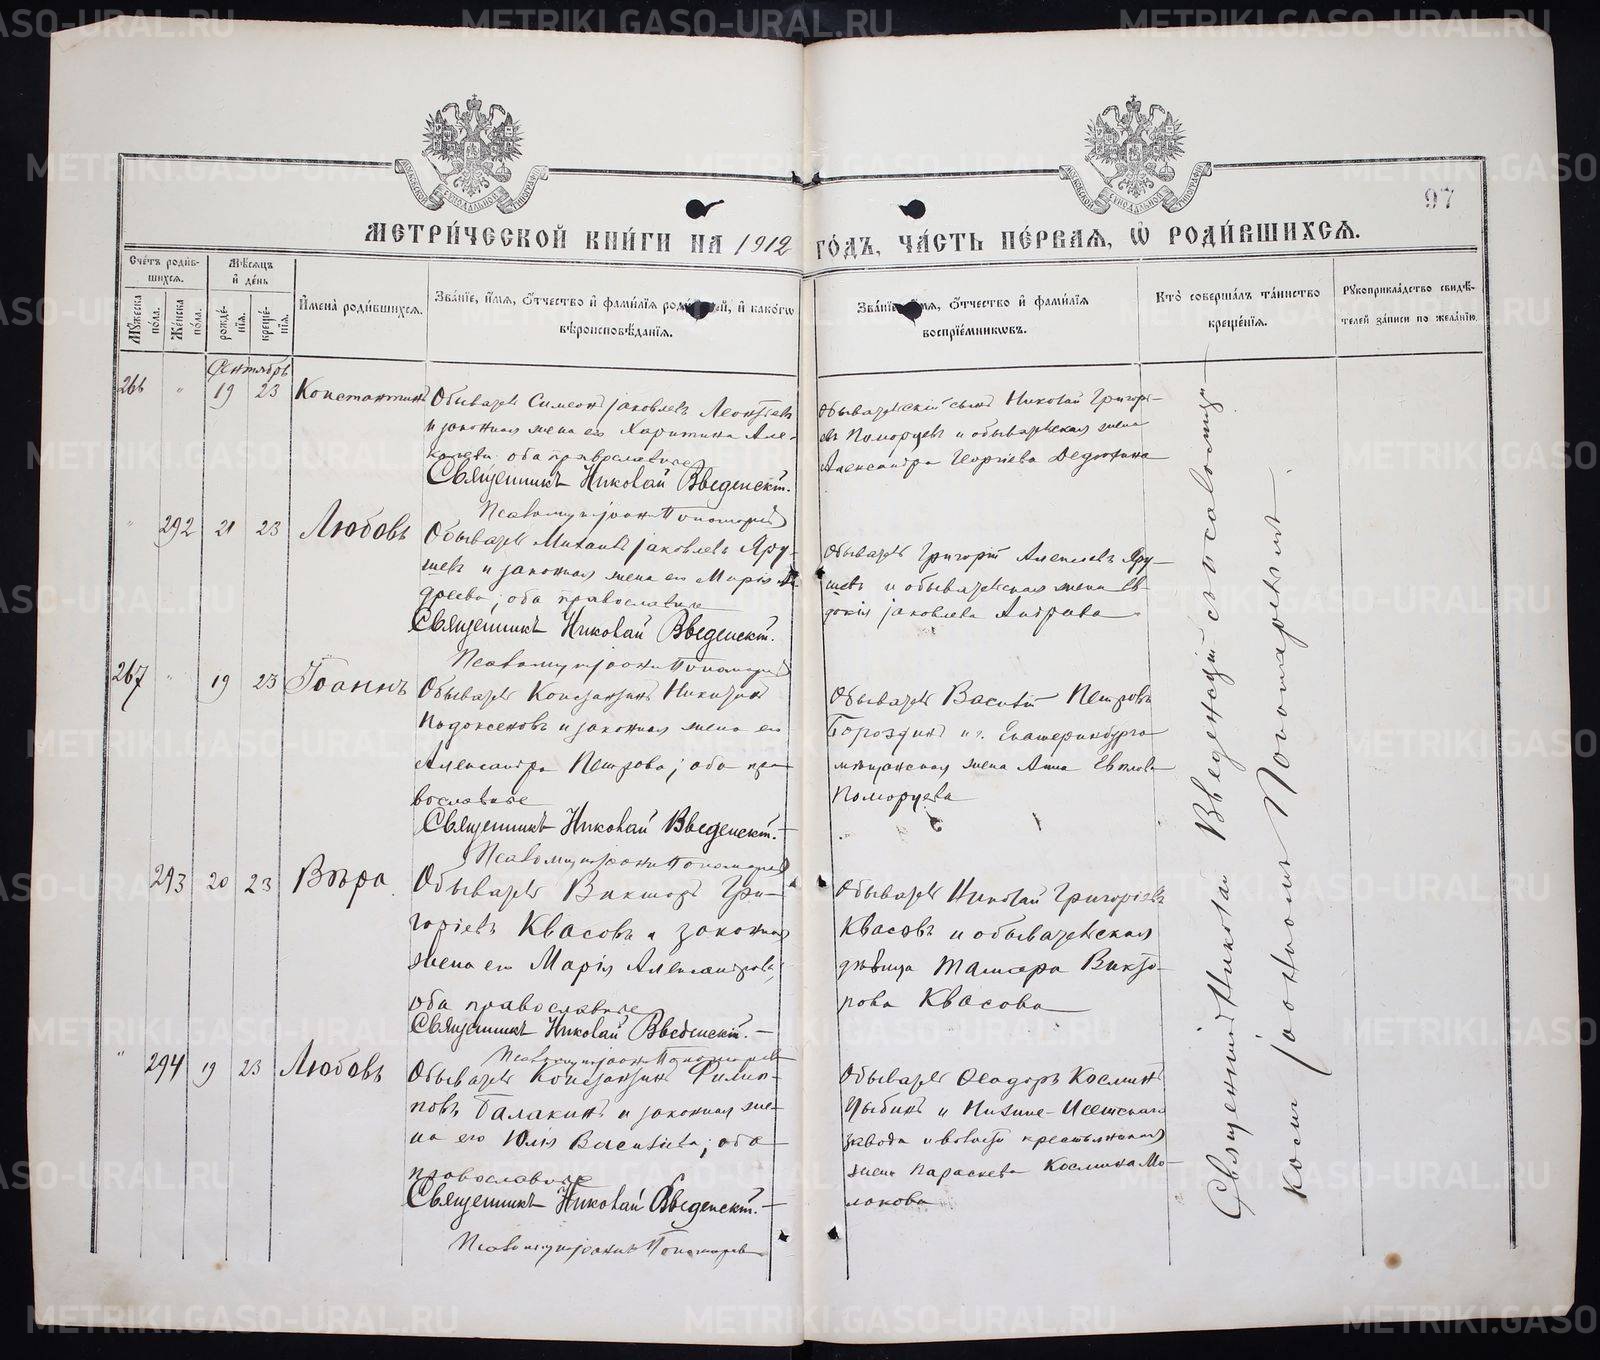 97
МЕТРИЧЕСКОЙ КНИГИ НА 1912 ГОДЪ, ЧАСТЬ ПЕРВАЯ, Ѡ РОДИВШИХСЯ.
Счетъ родившихся.
Мужеска пола.
Женска пола.
Мѣсяцъ и день
рожденія.
крещенія.
Имена родившихся.
Званіе, имя, отчество и фамилія родителей, и какого
вѣроисповѣданія.
Званіе, имя, отчество и фамилія
воспріемниковъ.
Кто совершалъ таинство
крещенія.
Рукоприкладство свидѣ-
телей записи по желанію.
Сентябрь
266 " 19 23 Константинъ
Обыватель Симеонъ Яковлевъ Леонтьевъ
и законная жена его Харитина Але-
оба православные
Священникъ Николай Введенскій.
Псаломщикъ Іоаннъ Пономаревъ
Обывательскій сынъ Николай Григорь-
евъ Поморцевъ и обывательская жена
Александра Георгіева Дедюхина
" 292 21 23 Любовь
Обыватель Михаилъ Яковлевъ Яру-
шевъ и законная жена его Марія Ан-
дреева; оба православные
Священникъ Николай Введенскій.
Псаломщикъ Іоаннъ Пономаревъ
Обыватель Григорій Алексѣевъ Яру-
шевъ и обывательская жена Ев-
докія Яковлева
267 " 19 23 Іоаннъ
Обыватель Константинъ Никитинъ
Подоксеновъ и законная жена его
Александра Петрова; оба пра-
вославные
Священникъ Николай Введенскій.
Псаломщикъ Іоаннъ Пономаревъ
Обыватель Василій Петровъ
Бороздинъ и г. Екатеринбурга
мѣщанская жена Анна
Поморцева
293 20 23 Вѣра
Обыватель Викторъ Гри-
горіевъ Квасовъ и законная
жена его Марія Александрова;
оба православные
Священникъ Николай Введенскій.
Псаломщикъ Іоаннъ Пономаревъ
Обыватель Николай Григоріевъ
Квасовъ и обывательская
дѣвица Тамара Викто-
рова Квасова
" 294 19 23 Любовь
Обыватель Константинъ Филип-
повъ Балакинъ и законная же-
на его Юлія Васильева; оба
православные
Священникъ Николай Введенскій.
Псаломщикъ Іоаннъ Пономаревъ
Обыватель Ѳеодоръ Косминъ
Цыбинъ и Нижне-Исетскаго
завода и волости крестьянская
жена Параскева Космина Мо-
локова
Священникъ Николай Введенскій съ псаломщи-
комъ Іоанномъ Пономаревымъ.
METRIKI.GASO-URAL.RU